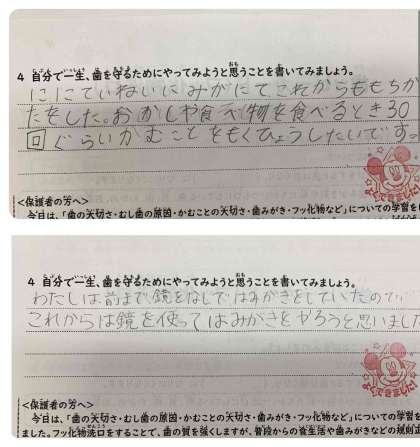 4 自分で一生、歯を守るためにやってみようと思うことを書いてみましょう。
にこていねいにみがにてこれからももちか
たをした。おかしや食べ物を食べるとき30
回ぐらいかむことをもくひょうしたいです
<保護者の方へ>
今日は、「歯の大切さ・むし歯の原因・かむことの大切さ・歯みがき・フッ化物など」についての学習を
4 自分で一生、歯を守るためにやってみようと思うことを書いてみましょう。
わたしは、前まで、鏡をなしではみがきをしていたので、
これからは鏡を使ってはみがきをやろうと思いました
よくできました!
<保護者の方へ>
今日は、「歯の大切さ・むし歯の原因・かむことの大切さ・歯みがき・フッ化物など」についての学習を
ました。フッ化物洗口をすることで、歯の質を強くしますが、普段からの食生活や歯みがきなどの規則